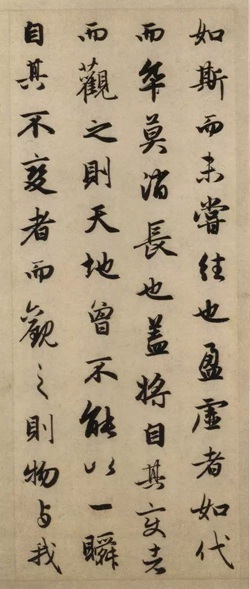 如斯而未嘗往也盈虛者如代
而卒莫消長也蓋將自其变者
而觀之則天地曾不能以一瞬
自其不變者而觀之則物与我